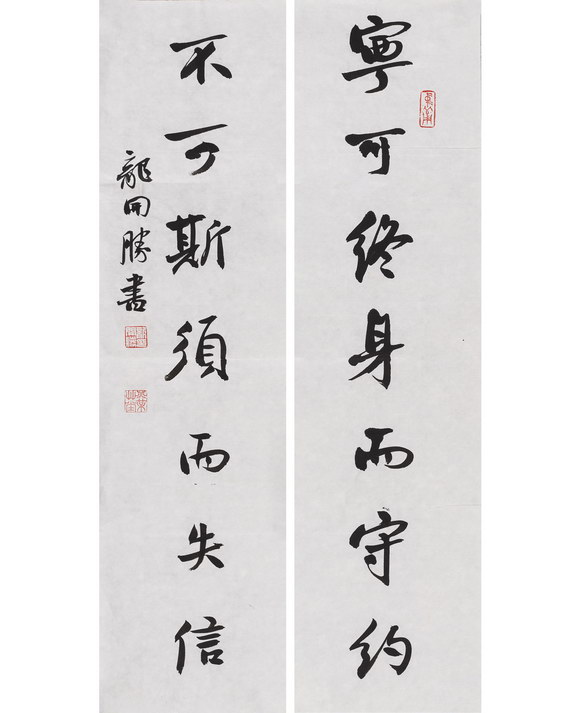 寧可終身而守約
不可斯須而失信
龍開勝書